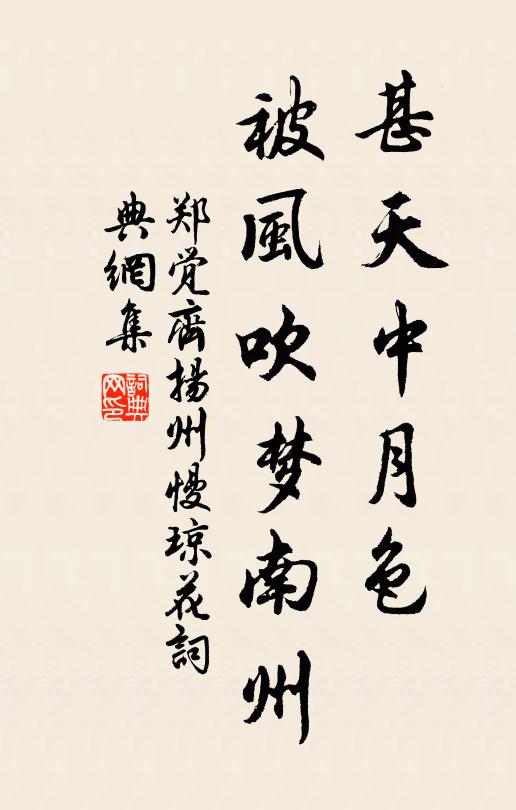 甚天中月色
被風吹梦南州
郑觉齋揚州慢琼花詞
典網集
詞典网印